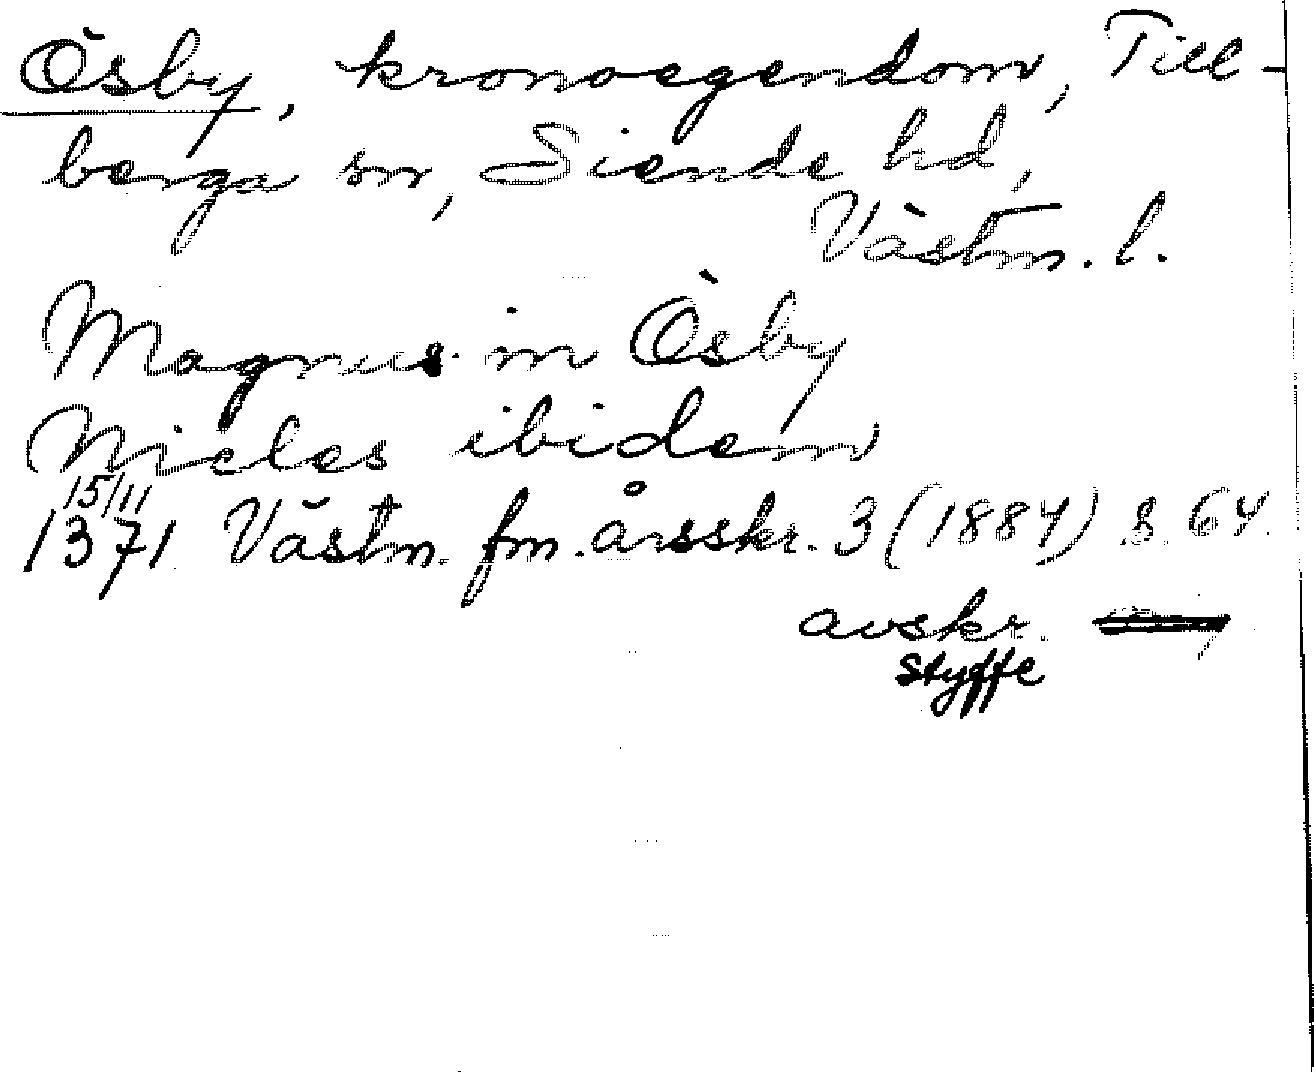 Ösby, kronoegendom, Till-
berga sn, Siende hd,
Västm. l.
Magnus in Ösby
Nicles ibidem
15/11
1371 Västm. fm. årsskr. 3 (1884) s. 64.
avskr.
Styffe